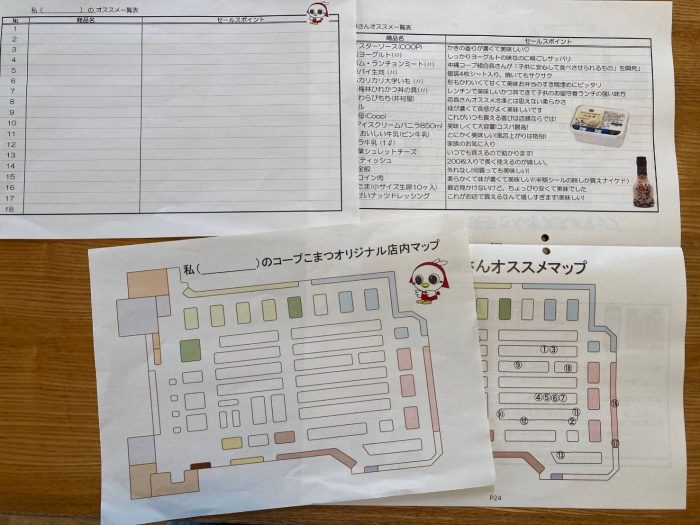 私（　　　　　）の オススメ一覧表
№ 商品名 セールスポイント
1
2
3
4
5
6
7
8
9
10
11
12
13
14
15
16
17
18
さんオススメ一覧表
商品名 セールスポイント
スターソース(COOP) かきの香りが濃くて美味しい♡
ヨーグルト(〃) しっかりヨーグルトの味なのに後ごしサッパリ
ム・ランチョンミート(〃) 沖縄コープ組合員さんが「子供に安心して食べさせられるもの」を開発
パイ生地(〃) 個装4枚シート入り。焼いてもサクサク
カリカリ大学いも(〃) 形もかわいくて甘くて美味お弁当のすき間埋めにピッタリ
梅林ひれかつ丼の具(〃) レンチンで美味しいかつ丼できて子供のお留守番ランチの強い味方
わらびもち(井村屋) 店員さんオススメ冷凍とは思えない柔らかさ
ル 緑が濃くて食感がよく美味しいです
母(Coop) これがいつも買える喜びは店舗ならでは!
アイスクリームバニラ850ml 美味しくて大容量!コスパ最高!
おいしい牛乳(ビン牛乳) とにかく美味しい!風呂上がりは格別!
ラ牛乳(1ℓ) 家族のお気に入り
葉シュレットチーズ いつでも買えるので助かります!
ティッシュ 200枚入りで長く使えるのが嬉しい。
全般 外れなし!何買っても美味しい!
コイン肉 柔らかくて味が濃くて美味しい!(半額シールの時しか買えナイケド)
たま(小サイズ生卵10ヶ入) 最近見かけないけど、ちょっぴり安くて美味でした
せいナッツドレッシング これがお店で買えるなんて嬉しすぎます!美味しい!
私（　　　　　）のコープこまつオリジナル店内マップ
さんオススメマップ
①③
⑨ ⑱
④⑤⑥⑦
⑭
⑩ ⑪
⑫ ②
⑬
P24